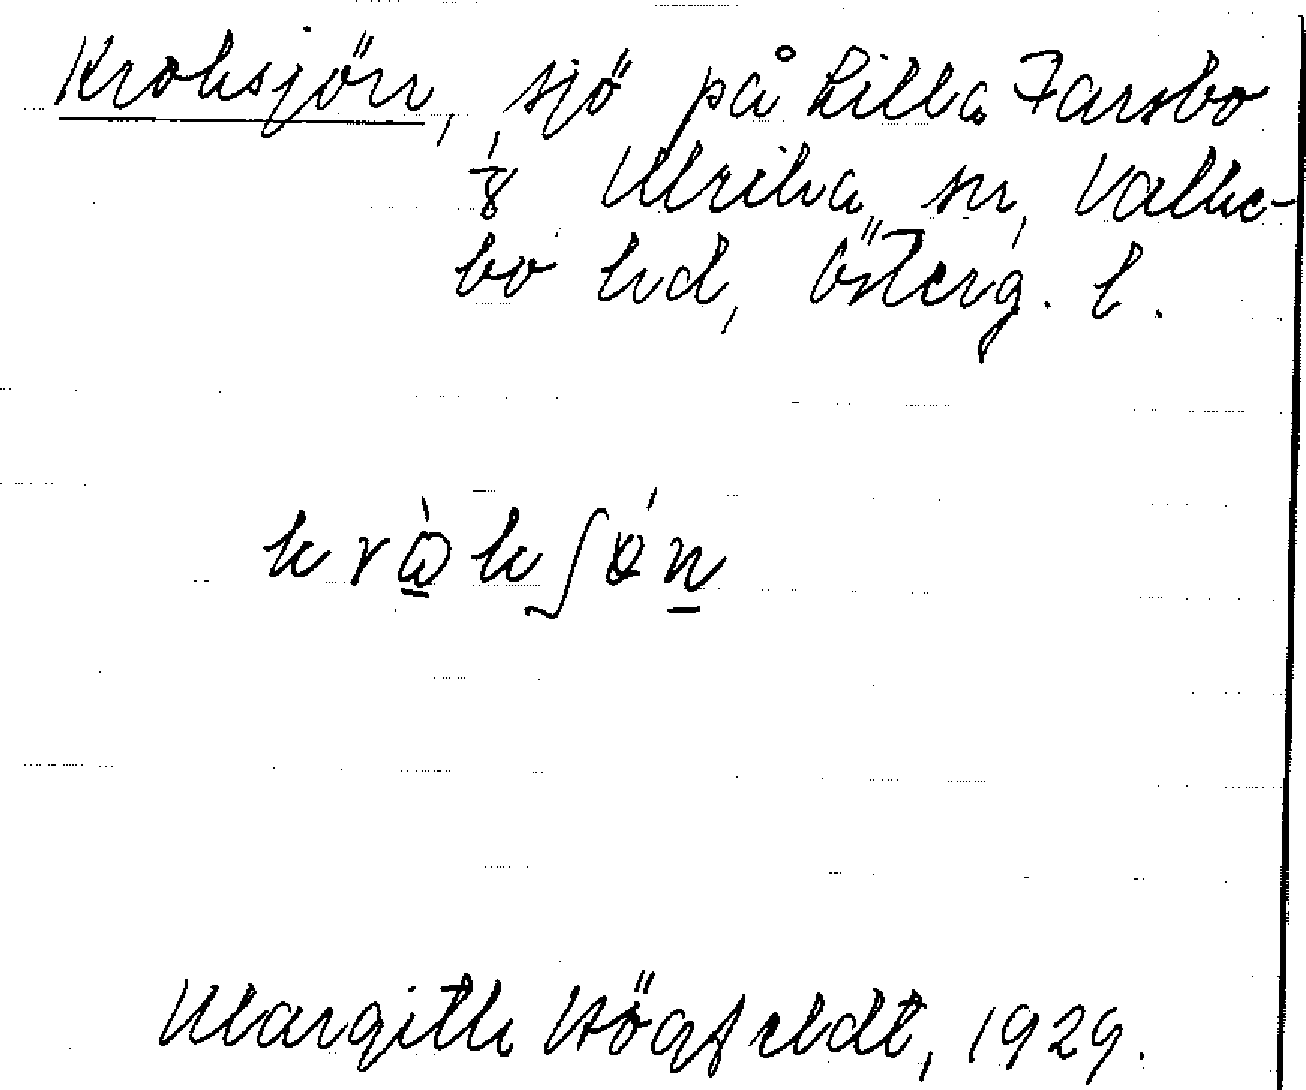 Kroksjön, sjö på Lilla Farsbo
1/8 Ulrika sn, Valke-
bo hd, Österg. l.
kròkʃǿn
Margith Högfeldt, 1929.